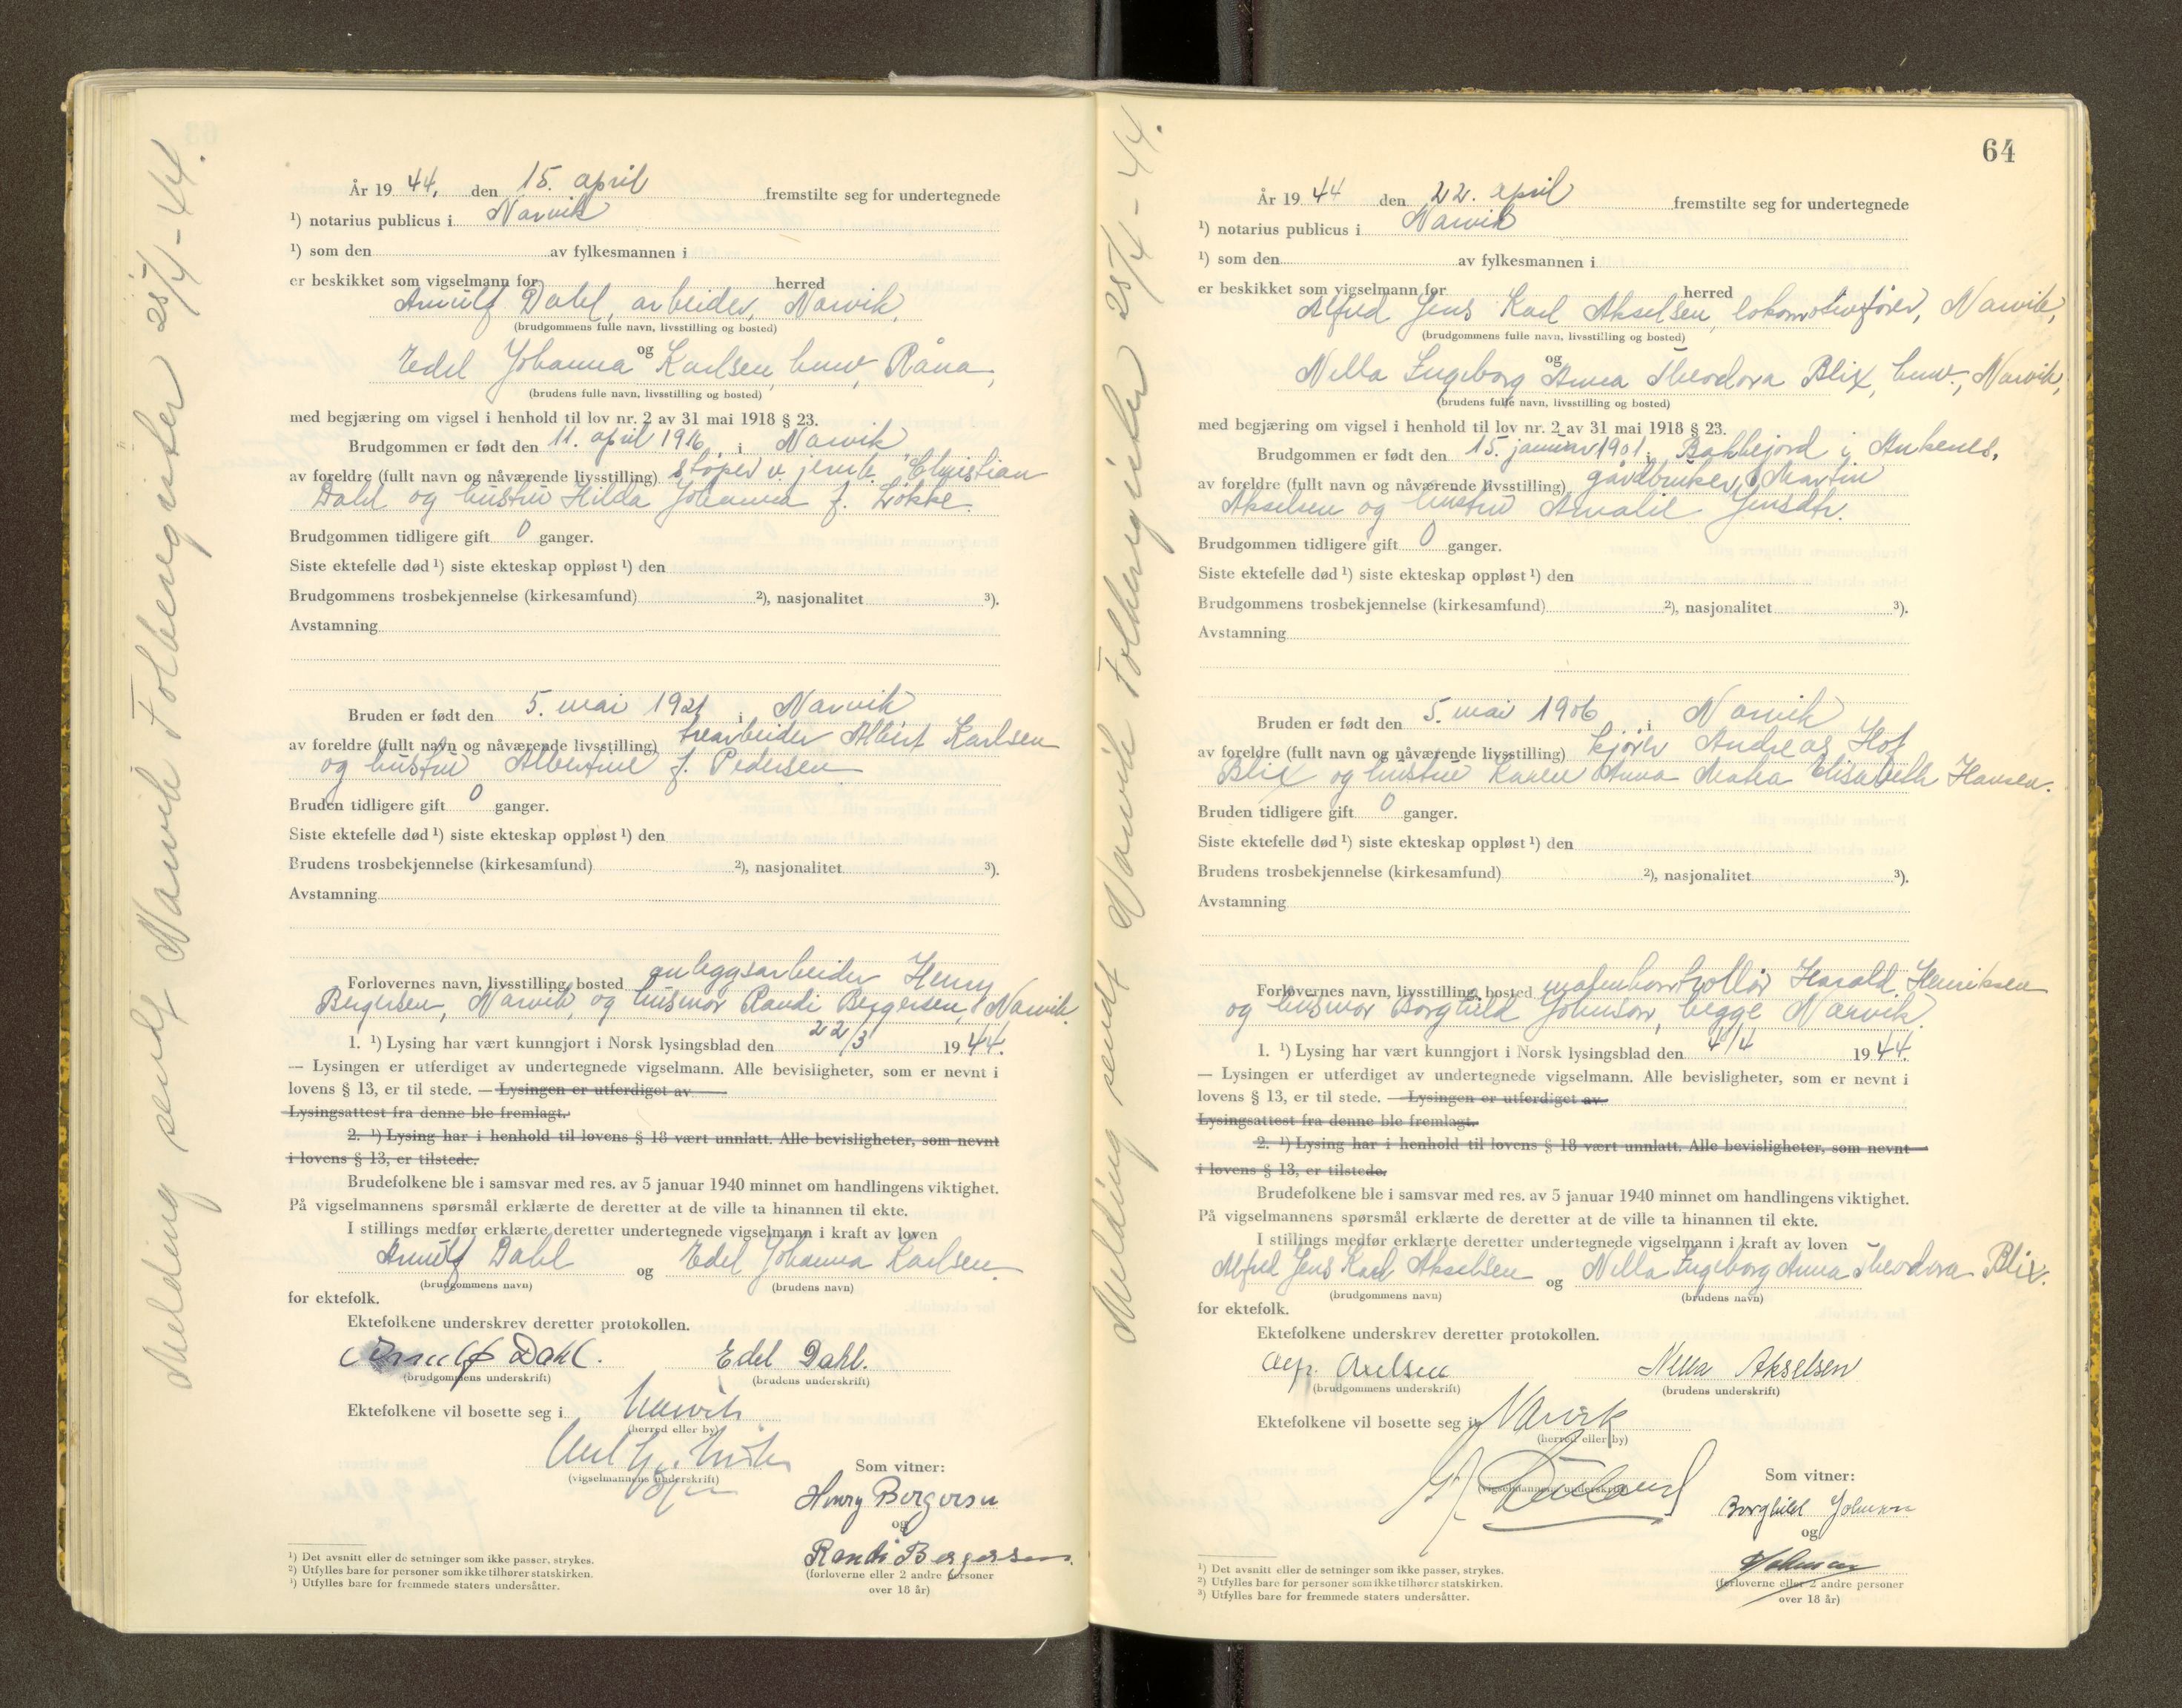 Melding sendt Narvik Folkeregister 25/4-44.
År 19 44, den 15. april fremstilte seg for undertegnede
¹) notarius publicus i Narvik
¹) som den av fylkesmannen i
er beskikket som vigselmann for herred
Arnulf Dahl, arbeider, Narvik,
(brudgommens fulle navn, livsstilling og bosted)
og
Edel Johanna Karlsen, husv, Råna,
(brudens fulle navn, livsstilling og bosted)
med begjæring om vigsel i henhold til lov nr. 2 av 31 mai 1918 § 23.
Brudgommen er født den 11. april 1916, i Narvik
av foreldre (fullt navn og nåværende livsstilling) støper v. jernb. Christian
Dahl og hustru Hilda Johanna f. Løkke.
Brudgommen tidligere gift 0 ganger.
Siste ektefelle død ¹) siste ekteskap oppløst ¹) den
Brudgommens trosbekjennelse (kirkesamfund) ²), nasjonalitet ³).
Avstamning
Bruden er født den 5. mai 1921 i Narvik
av foreldre (fullt navn og nåværende livsstilling) trearbeider Albert Karlsen
og hustru Albertine f. Pedersen
Bruden tidligere gift 0 ganger.
Siste ektefelle død ¹) siste ekteskap oppløst ¹) den
Brudens trosbekjennelse (kirkesamfund) ²), nasjonalitet ³).
Avstamning
Forlovernes navn, livsstilling, bosted anleggsarbeider Henry
Bergersen, Narvik, og husmor Randi Bergersen, Narvik.
1. ¹) Lysing har vært kunngjort i Norsk lysingsblad den 22/3 19 44.
— Lysingen er utferdiget av undertegnede vigselmann. Alle bevisligheter, som er nevnt i
lovens § 13, er til stede. — Lysingen er utferdiget av
Lysingsattest fra denne ble fremlagt.
2. ¹) Lysing har i henhold til lovens § 18 vært unnlatt. Alle bevisligheter, som nevnt
i lovens § 13, er tilstede.
Brudefolkene ble i samsvar med res. av 5 januar 1940 minnet om handlingens viktighet.
På vigselmannens spørsmål erklærte de deretter at de ville ta hinannen til ekte.
I stillings medfør erklærte deretter undertegnede vigselmann i kraft av loven
Arnulf Dahl og Edel Johanna Karlsen
(brudgommens navn) (brudens navn)
for ektefolk.
Ektefolkene underskrev deretter protokollen.
Arnulf Dahl. Edel Dahl.
(brudgommens underskrift) (brudens underskrift)
Ektefolkene vil bosette seg i Narvik
(herred eller by)
(vigselmannens underskrift)
Som vitner:
Henry Bergersen
og
Randi Bergersen.
(forloverne eller 2 andre personer
over 18 år)
¹) Det avsnitt eller de setninger som ikke passer, strykes.
²) Utfylles bare for personer som ikke tilhører statskirken.
³) Utfylles bare for fremmede staters undersåtter.
64
Melding sendt Narvik Folkeregister 25/4-44.
År 19 44 den 22. april fremstilte seg for undertegnede
¹) notarius publicus i Narvik
¹) som den av fylkesmannen i
er beskikket som vigselmann for herred
Alfred Jens Karl Akselsen, lokomotivfører, Narvik,
(brudgommens fulle navn, livsstilling og bosted)
og
Nella Ingeborg Anna Theodora Blix, husv., Narvik,
(brudens fulle navn, livsstilling og bosted)
med begjæring om vigsel i henhold til lov nr. 2 av 31 mai 1918 § 23.
Brudgommen er født den 15. januar 1901 i Bakkejord i Ankenes,
av foreldre (fullt navn og nåværende livsstilling) gårdbruker Martin
Akselsen og hustru Amalie Jensdtr.
Brudgommen tidligere gift 0 ganger.
Siste ektefelle død ¹) siste ekteskap oppløst ¹) den
Brudgommens trosbekjennelse (kirkesamfund) ²), nasjonalitet ³).
Avstamning
Bruden er født den 5. mai 1906 i Narvik
av foreldre (fullt navn og nåværende livsstilling) kjører Andreas Hof
Blix og hustru Karen Anna Elisabeth Hansen.
Bruden tidligere gift 0 ganger.
Siste ektefelle død ¹) siste ekteskap oppløst ¹) den
Brudens trosbekjennelse (kirkesamfund) ²), nasjonalitet ³).
Avstamning
Forlovernes navn, livsstilling, bosted Harald Henriksen
og husmor Borghild Johnson, begge Narvik.
1. ¹) Lysing har vært kunngjort i Norsk lysingsblad den 4/4 19 44.
— Lysingen er utferdiget av undertegnede vigselmann. Alle bevisligheter, som er nevnt i
lovens § 13, er til stede. — Lysingen er utferdiget av
Lysingsattest fra denne ble fremlagt.
2. ¹) Lysing har i henhold til lovens § 18 vært unnlatt. Alle bevisligheter, som nevnt
i lovens § 13, er tilstede.
Brudefolkene ble i samsvar med res. av 5 januar 1940 minnet om handlingens viktighet.
På vigselmannens spørsmål erklærte de deretter at de ville ta hinannen til ekte.
I stillings medfør erklærte deretter undertegnede vigselmann i kraft av loven
Alfred Jens Karl Akselsen og Nella Ingeborg Anna Theodora Blix.
(brudgommens navn) (brudens navn)
for ektefolk.
Ektefolkene underskrev deretter protokollen.
Nella Akselsen
(brudgommens underskrift) (brudens underskrift)
Ektefolkene vil bosette seg i Narvik
(herred eller by)
(vigselmannens underskrift)
Som vitner:
Borghild Johnson
og
(forloverne eller 2 andre personer
over 18 år)
¹) Det avsnitt eller de setninger som ikke passer, strykes.
²) Utfylles bare for personer som ikke tilhører statskirken.
³) Utfylles bare for fremmede staters undersåtter.